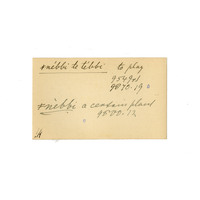 *nébbi to tébbi to play
9549d
9870.19
*nèbbi a certain plant
9800.12